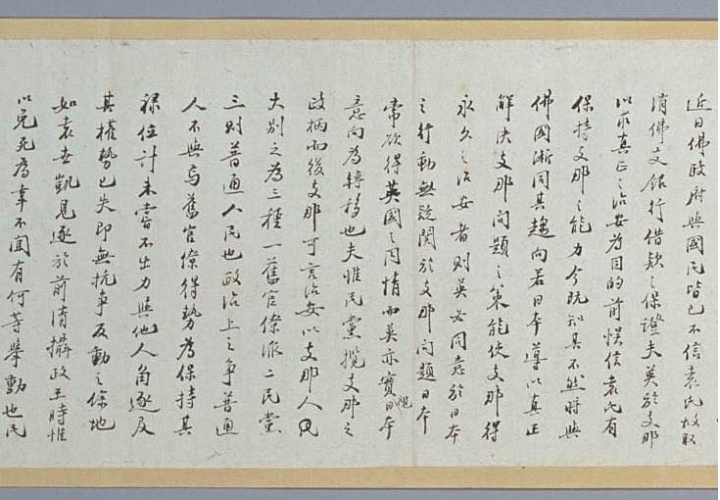 近日佛政府與國民皆已不信袁氏故取
消佛文銀行借款之保證夫英於支那
以求真正之治安為目的前悮信袁氏有
保持支那之能力今既知其不然將與
佛國漸同其趨向若日本導以真正
解決支那問題之策能使支那得
永久之治安者則英必同意於日本
之行動無疑関於支那問題日本
常欲得英國之同情而英亦實視日本
意向為轉移也夫惟民黨攬支那之
政柄而後支那可言治安以支那人民
大別之為三種一舊官僚派二民黨
三則普通人民也政治上之爭普通
人不與焉舊官僚得勢為保持其
祿位計未嘗不出力與他人角逐及
其權勢已失即無抗爭反動之餘地
如袁世凱見逐於前清攝政王時惟
以免死為幸不聞有何等舉動也民